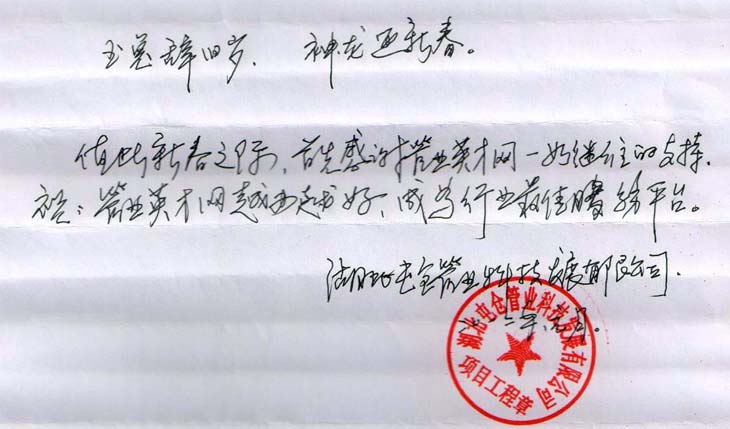 玉兔辞旧岁, 神龙迎新春。
值此新春之际,首先感谢管业英才网一如继往的支持.
祝:管业英才网越办越好,成为行业最佳招聘平台。
湖北屯仓管业科技发展有限公司.
二年元月.
湖北屯仓管业科技发展有限公司
项目工程章